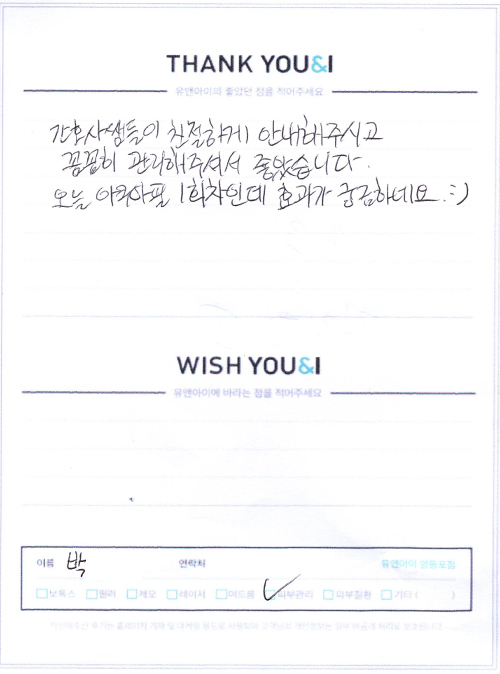 THANK YOU&I
유앤아이의 좋았던 점을 적어주세요
간호사쌤들이 친절하게 안내해주시고
꼼꼼히 관리해주셔서 좋았습니다.
오늘 아쿠아필 1회차인데 효과가 궁금하네요 :)
WISH YOU&I
유앤아이에 바라는 점을 적어주세요
이름 박 연락처 유앤아이 영등포점
보톡스 필러 제모 레이저 여드름 ✓피부관리 피부질환 기타 ( )